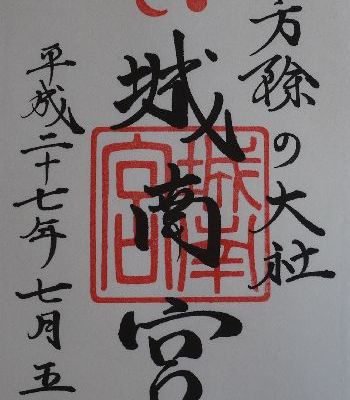 方除の大社
城南宮
平成二十七年七月五
城南宮